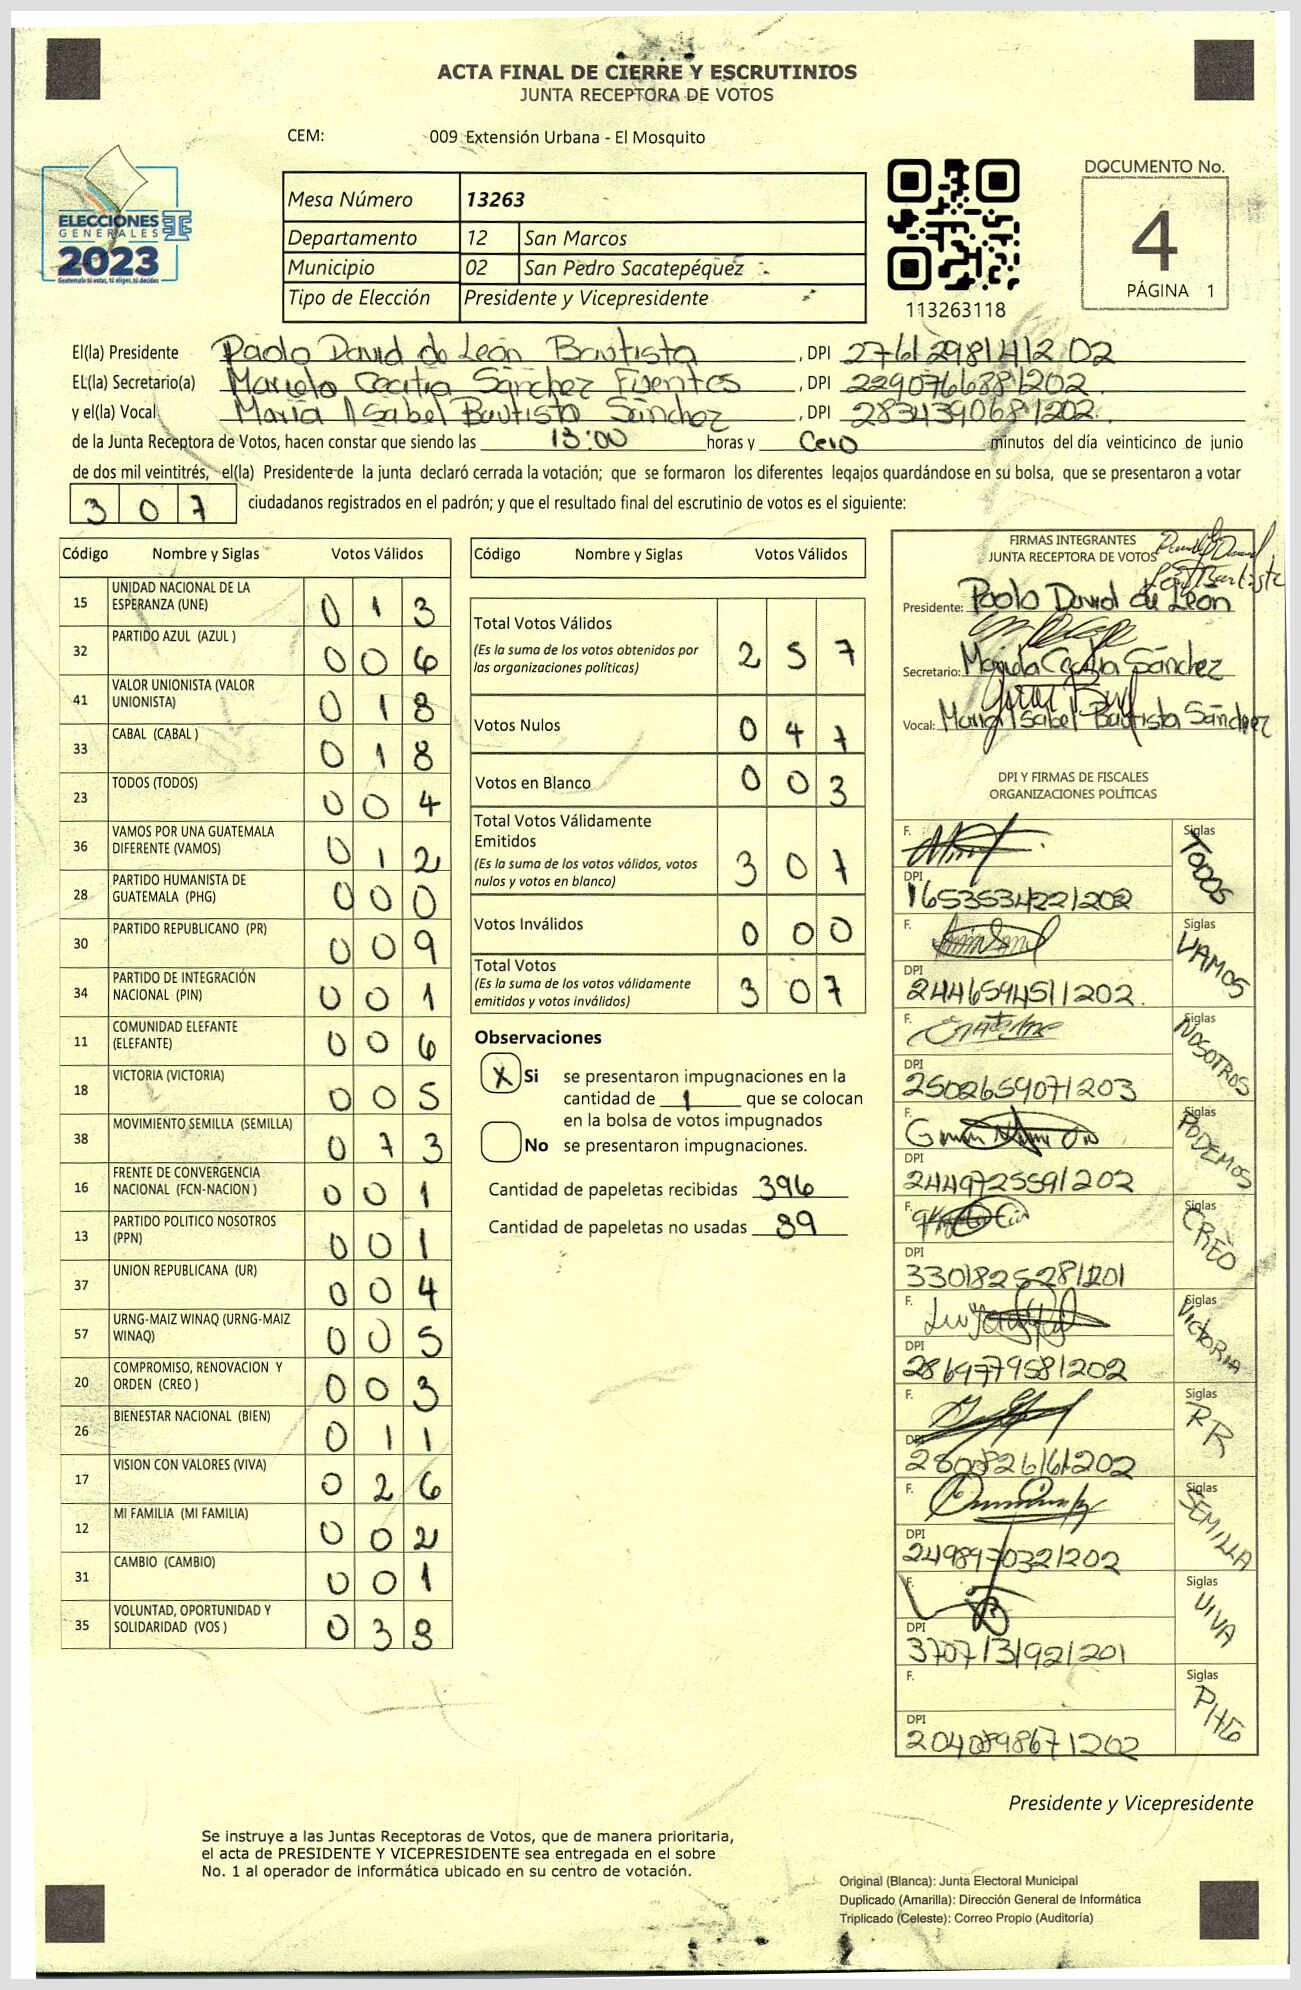 ACTA FINAL DE CIERRE Y ESCRUTINIOS
JUNTA RECEPTORA DE VOTOS
CEM: 009 Extensión Urbana - El Mosquito
ELECCIONES
GENERALES
2023
Guatemala tú votas, tú eliges, tú decides
Mesa Número 13263
Departamento 12 San Marcos
Municipio 02 San Pedro Sacatepéquez
Tipo de Elección Presidente y Vicepresidente
113263118
DOCUMENTO No.
4
PÁGINA 1
El(la) Presidente Paolo David de León Bautista , DPI 2761298141202
EL(la) Secretario(a) Cecilia Sánchez Fuentes , DPI 2290766881202
y el(la) Vocal María Isabel Bautista Sánchez , DPI 2834390681202
de la Junta Receptora de Votos, hacen constar que siendo las 18:00 horas y Cero minutos del día veinticinco de junio
de dos mil veintitrés, el(la) Presidente de la junta declaró cerrada la votación; que se formaron los diferentes legajos quardándose en su bolsa, que se presentaron a votar
307 ciudadanos registrados en el padrón; y que el resultado final del escrutinio de votos es el siguiente:
Código Nombre y Siglas Votos Válidos
15 UNIDAD NACIONAL DE LA ESPERANZA (UNE) 013
32 PARTIDO AZUL (AZUL ) 006
41 VALOR UNIONISTA (VALOR UNIONISTA) 018
33 CABAL (CABAL ) 018
23 TODOS (TODOS) 004
36 VAMOS POR UNA GUATEMALA DIFERENTE (VAMOS) 012
28 PARTIDO HUMANISTA DE GUATEMALA (PHG) 000
30 PARTIDO REPUBLICANO (PR) 009
34 PARTIDO DE INTEGRACIÓN NACIONAL (PIN) 001
11 COMUNIDAD ELEFANTE (ELEFANTE) 006
18 VICTORIA (VICTORIA) 005
38 MOVIMIENTO SEMILLA (SEMILLA) 073
16 FRENTE DE CONVERGENCIA NACIONAL (FCN-NACION ) 001
13 PARTIDO POLITICO NOSOTROS (PPN) 001
37 UNION REPUBLICANA (UR) 004
57 URNG-MAIZ WINAQ (URNG-MAIZ WINAQ) 005
20 COMPROMISO, RENOVACION Y ORDEN (CREO ) 003
26 BIENESTAR NACIONAL (BIEN) 011
17 VISION CON VALORES (VIVA) 026
12 MI FAMILIA (MI FAMILIA) 002
31 CAMBIO (CAMBIO) 001
35 VOLUNTAD, OPORTUNIDAD Y SOLIDARIDAD (VOS ) 038
Código Nombre y Siglas Votos Válidos
Total Votos Válidos 257
(Es la suma de los votos obtenidos por
las organizaciones políticas)
Votos Nulos 047
Votos en Blanco 003
Total Votos Válidamente
Emitidos 307
(Es la suma de los votos válidos, votos
nulos y votos en blanco)
Votos Inválidos 000
Total Votos 307
(Es la suma de los votos válidamente
emitidos y votos inválidos)
Observaciones
X Si se presentaron impugnaciones en la
cantidad de 1 que se colocan
en la bolsa de votos impugnados
No se presentaron impugnaciones.
Cantidad de papeletas recibidas 396
Cantidad de papeletas no usadas 89
FIRMAS INTEGRANTES
JUNTA RECEPTORA DE VOTOS
Presidente: Paolo David de León
Secretario: Cecilia Sánchez
Vocal: María Isabel Bautista Sánchez
DPI Y FIRMAS DE FISCALES
ORGANIZACIONES POLÍTICAS
F. Siglas TODOS
DPI 1653534221202
F. Siglas VAMOS
DPI 2446594511202
F. Siglas NOSOTROS
DPI 2502659071203
F. Siglas PODEMOS
DPI 2449725591202
F. Siglas CREO
DPI 3301825281201
F. Siglas VICTORIA
DPI 2869779581202
F. Siglas RR
DPI
F. Siglas SEMILLA
DPI 2498970321202
F. Siglas VIVA
DPI 3707131921201
F. Siglas PHG
DPI 2040898671202
Presidente y Vicepresidente
Se instruye a las Juntas Receptoras de Votos, que de manera prioritaria,
el acta de PRESIDENTE Y VICEPRESIDENTE sea entregada en el sobre
No. 1 al operador de informática ubicado en su centro de votación.
Original (Blanca): Junta Electoral Municipal
Duplicado (Amarilla): Dirección General de Informática
Triplicado (Celeste): Correo Propio (Auditoría)